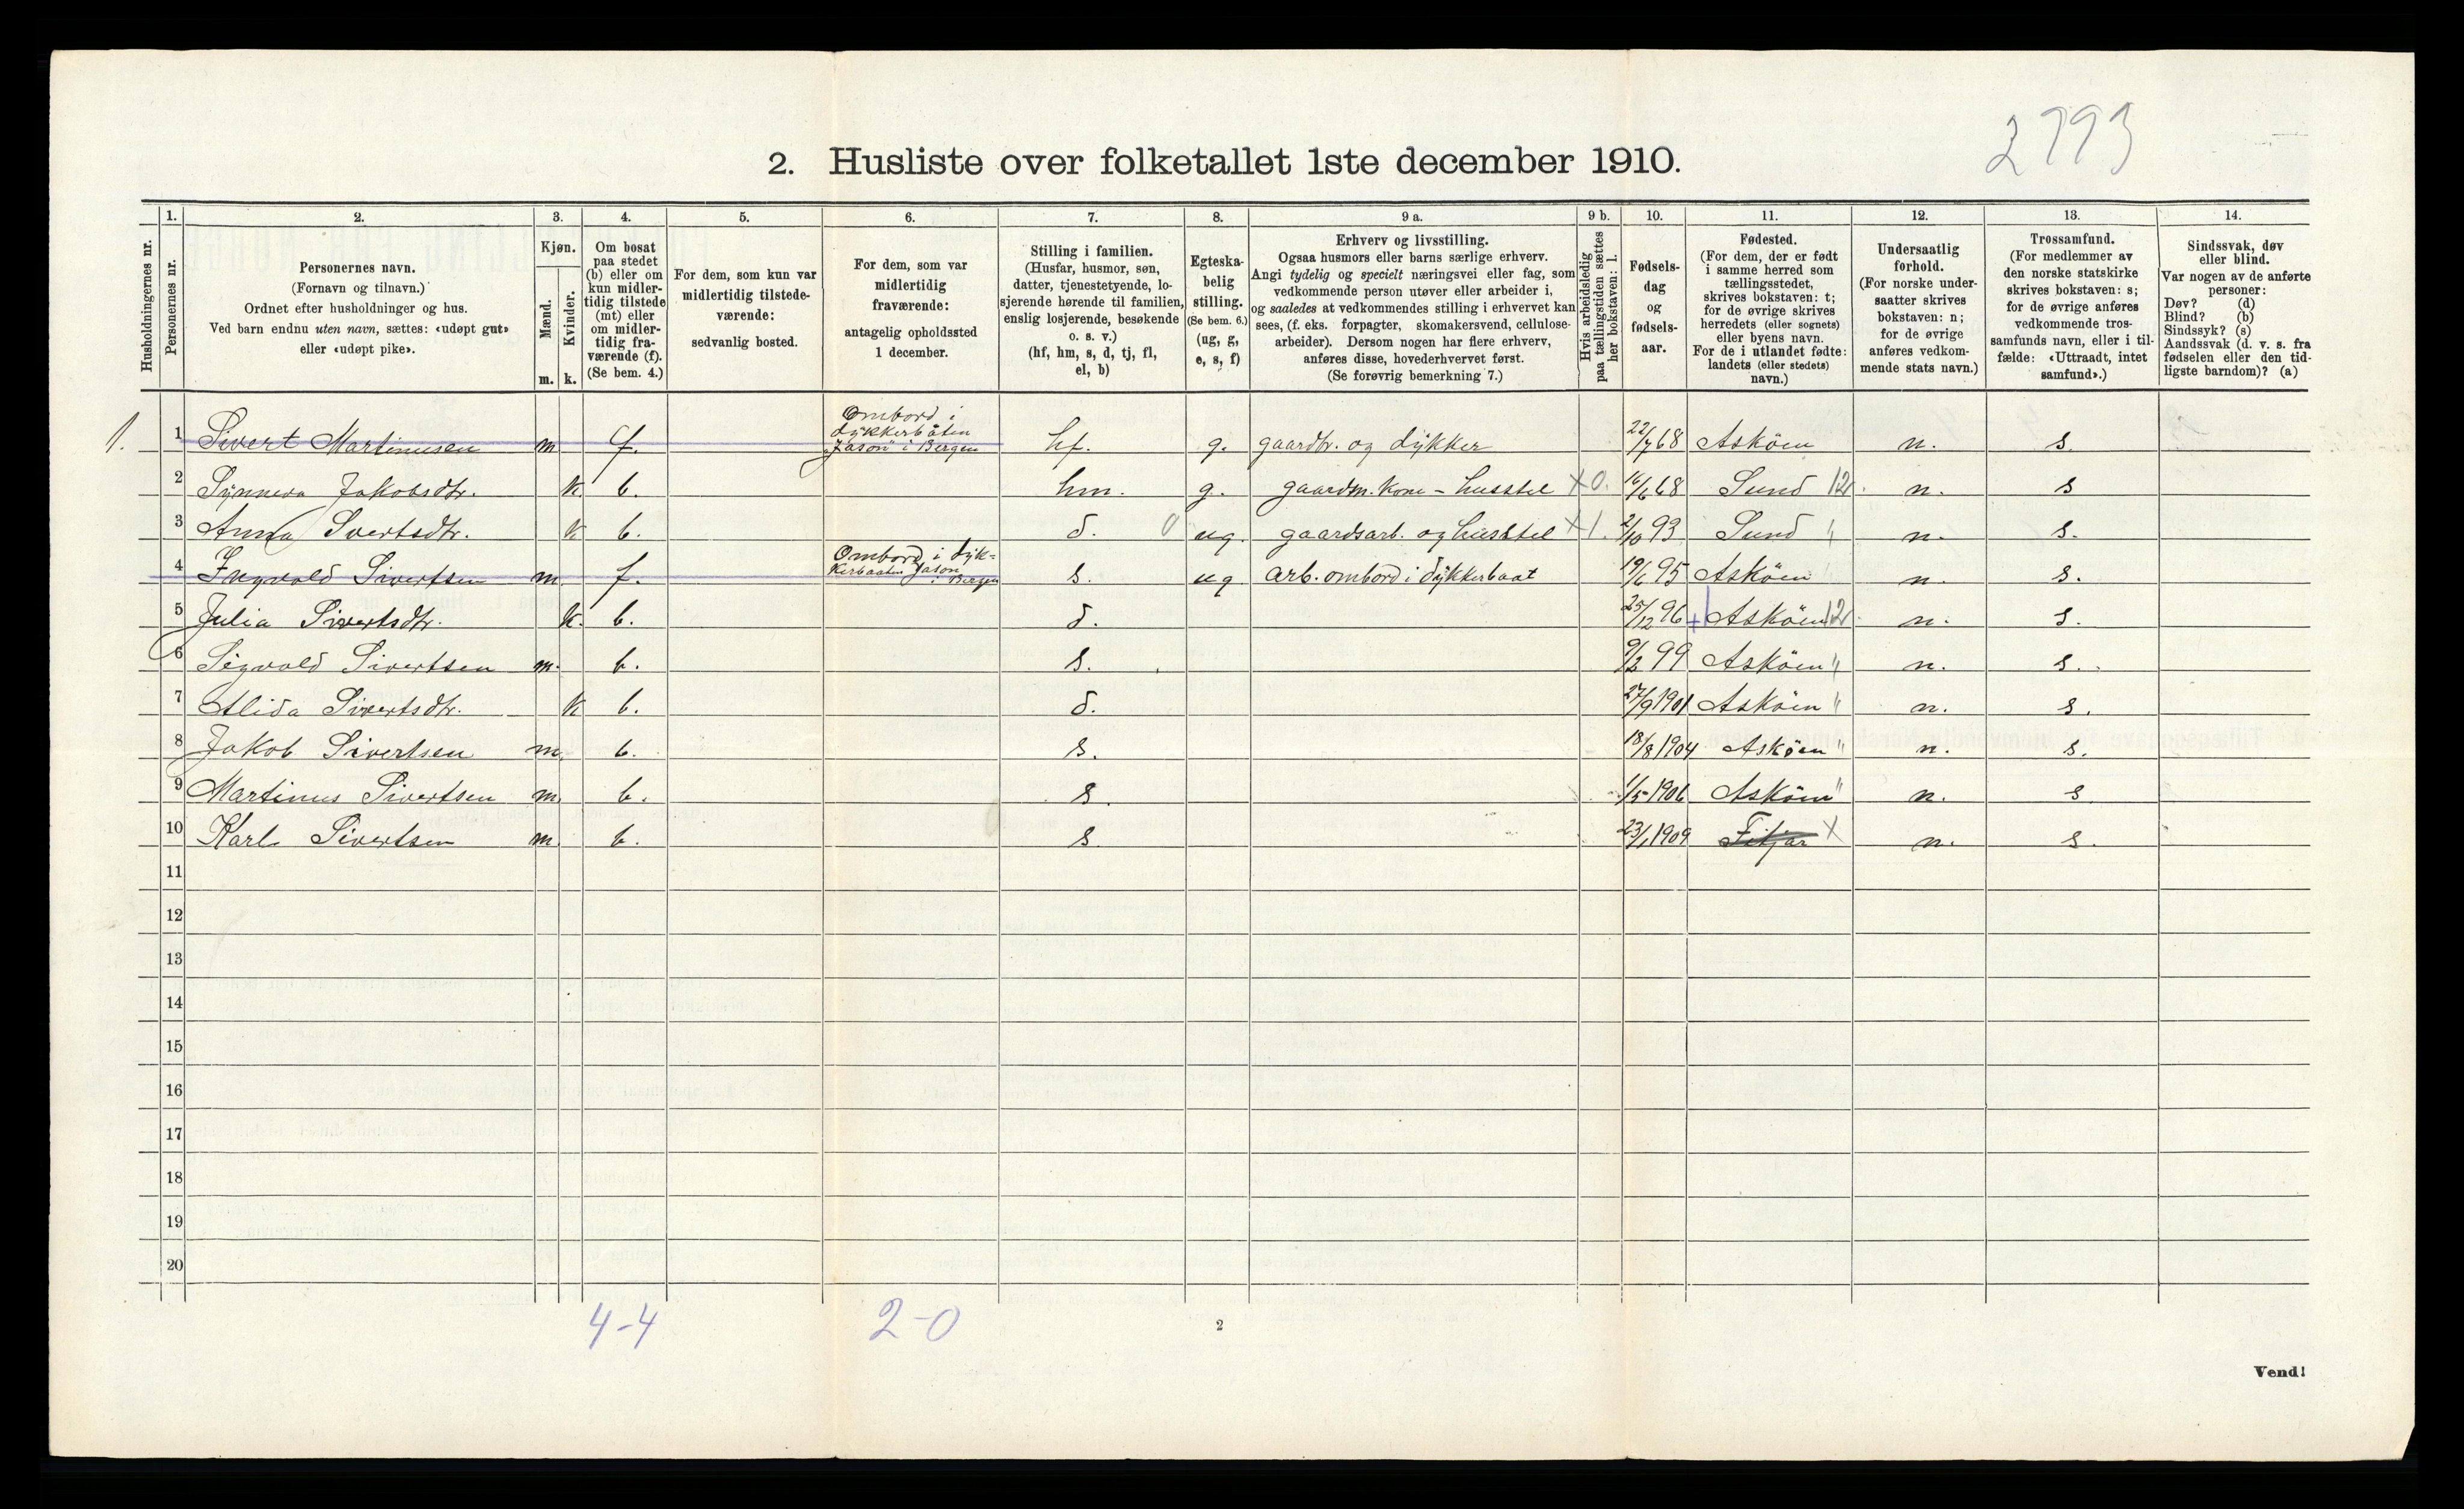 2793
2. Husliste over folketallet 1ste december 1910.
Husholdningernes nr.
1.
Personernes nr.
2.
Personernes navn.
(Fornavn og tilnavn.)
Ordnet efter husholdninger og hus.
Ved barn endnu uten navn, sættes: «udøpt gut»
eller «udøpt pike».
3.
Kjøn.
Mænd.
Kvinder.
m. k.
4.
Om bosat
paa stedet
(b) eller om
kun midler-
tidig tilstede
(mt) eller
om midler-
tidig fra-
værende (f).
(Se bem. 4.)
5.
For dem, som kun var
midlertidig tilstede-
værende:
sedvanlig bosted.
6.
For dem, som var
midlertidig
fraværende:
antagelig opholdssted
1 december.
7.
Stilling i familien.
(Husfar, husmor, søn,
datter, tjenestetyende, lo-
sjerende hørende til familien,
enslig losjerende, besøkende
o. s. v.)
(hf, hm, s, d, tj, fl,
el, b)
8.
Egteska-
belig
stilling.
(Se bem. 6.)
(ug, g,
e, s, f)
9 a.
Erhverv og livsstilling.
Ogsaa husmors eller barns særlige erhverv.
Angi tydelig og specielt næringsvei eller fag, som
vedkommende person utøver eller arbeider i,
og saaledes at vedkommendes stilling i erhvervet kan
sees, (f. eks. forpagter, skomakersvend, cellulose-
arbeider). Dersom nogen har flere erhverv,
anføres disse, hovederhvervet først.
(Se forøvrig bemerkning 7.)
9 b.
Hvis arbeidsledig
paa tællingstiden sættes
her bokstaven: l.
10.
Fødsels-
dag
og
fødsels-
aar.
11.
Fødested.
(For dem, der er født
i samme herred som
tællingsstedet,
skrives bokstaven: t;
for de øvrige skrives
herredets (eller sognets)
eller byens navn.
For de i utlandet fødte:
landets (eller stedets)
navn.)
12.
Undersaatlig
forhold.
(For norske under-
saatter skrives
bokstaven: n;
for de øvrige
anføres vedkom-
mende stats navn.)
13.
Trossamfund.
(For medlemmer av
den norske statskirke
skrives bokstaven: s;
for de øvrige anføres
vedkommende tros-
samfunds navn, eller i til-
fælde: «Uttraadt, intet
samfund».)
14.
Sindssvak, døv
eller blind.
Var nogen av de anførte
personer:
Døv? (d)
Blind? (b)
Sindssyk? (s)
Aandssvak (d. v. s. fra
fødselen eller den tid-
ligste barndom)? (a)
1. 1 Sivert Martinusen m f. Ombord i dykkerbåten „Jason" i Bergen hf. g. gaardbr. og dykker 22/7 68 Asköen n. s.
2 Synneva Jakobsdtr. k b. hm. g. gaardm. kone - husstel X 0. 16/6 68 Sund 12. n. s
3 Anna Sivertsdtr. k b. d. 0 ug. gaardsarb. og husstel X 1. 2/10 93 Sund " n. s.
4 Ingvald Sivertsen m. f. Ombord i dyk-kerbaaten Jason i Bergen s. ug arb. ombord i dykkerbaat 19/6 95 Asköen n. s.
5 Julia Sivertsdtr. k. b. d. 25/12 96 + Asköen 12. n. s.
6 Sigvald Sivertsen m. b. s. 9/2 99 Asköen " n. s.
7 Alida Sivertsdtr. k b. d. 27/9 1901 Asköen " n. s.
8 Jakob Sivertsen m. b. s. 18/8 1904 Asköen " n. s.
9 Martinus Sivertsen m. b. s. 1/5 1906 Asköen " n. s
10 Karl Sivertsen m. b. s. 23/1 1909 Fitjar X n. s.
11
12
13
14
15
16
17
18
19
20
4-4 2-0
2
Vend!